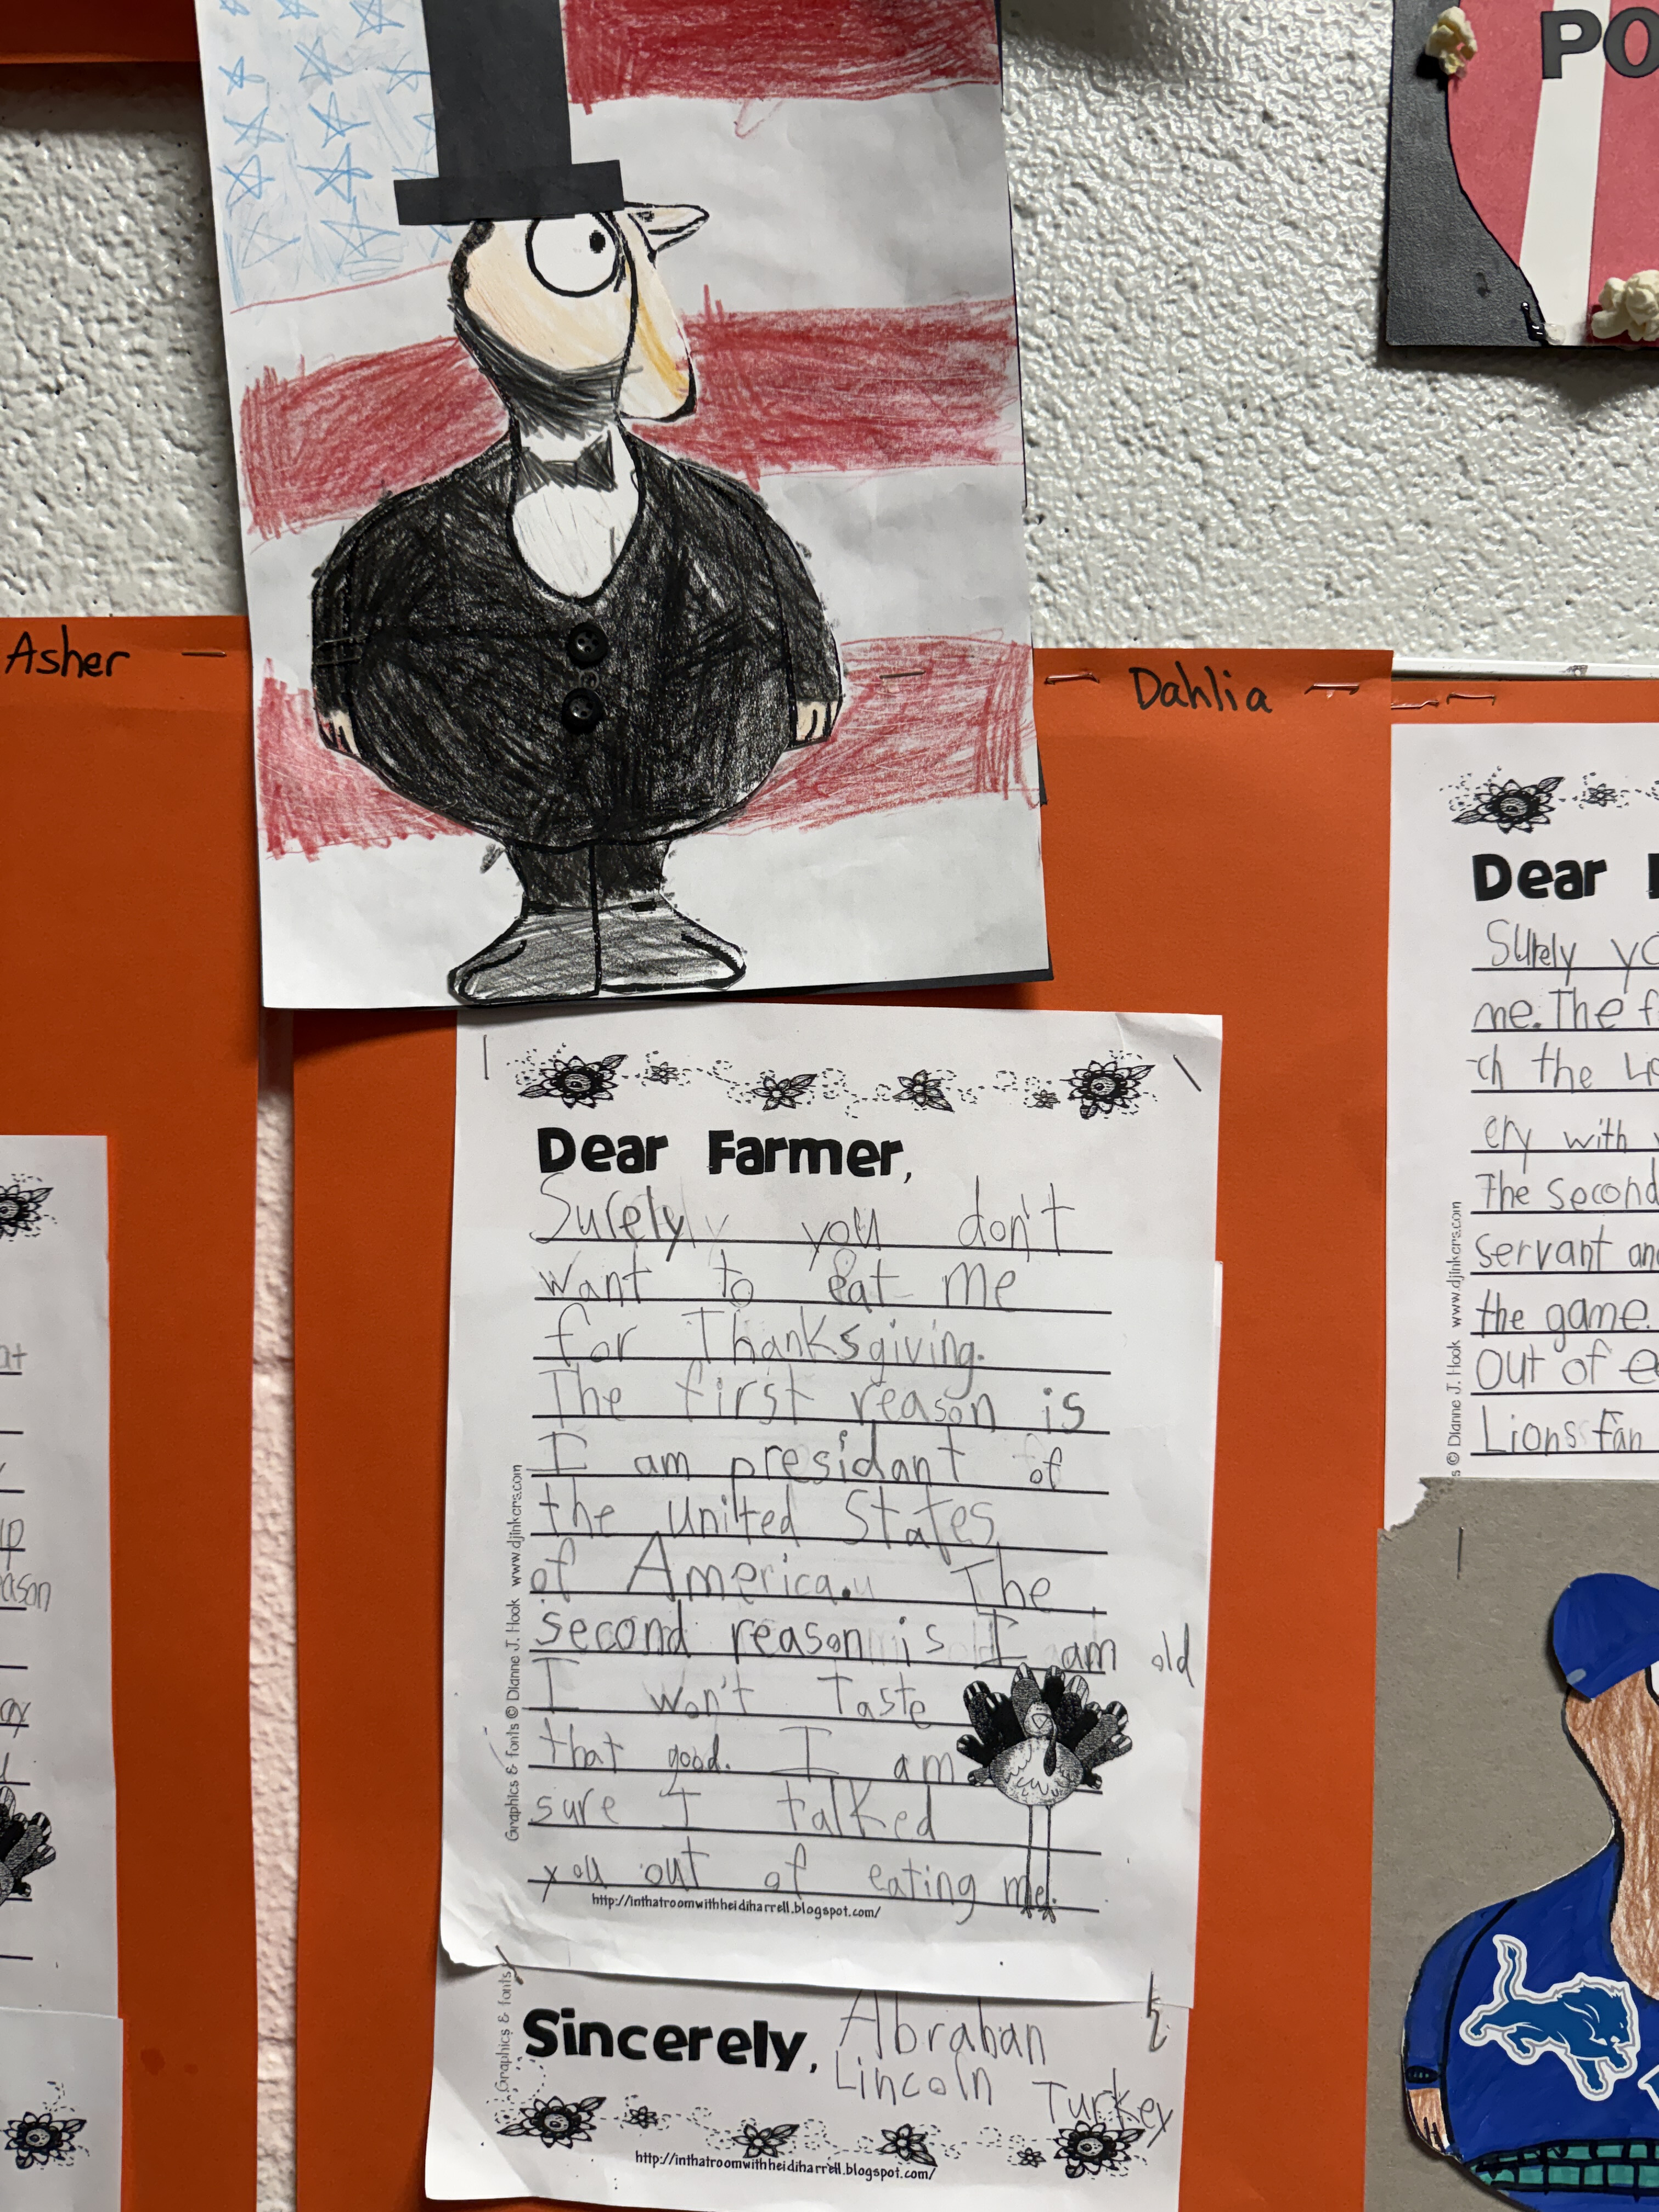 PO
Asher
Dahlia
Dear Farmer,
Surely you don't
want to eat me
for Thanksgiving.
The first reason is
I am presidant of
the united States
of America. The
second reason is I am old
I won't Taste
that good. I am
sure I talked
you out of eating me.
http://inthatroomwithheidiharrell.blogspot.com/
Graphics & fonts © Dianne J. Hook www.djinkers.com
Sincerely, Abrahan
Lincoln Turkey
Graphics & fonts
http://inthatroomwithheidiharrell.blogspot.com/
Dear
Surely yo
me. The f
ch the Lio
ery with
The second
servant an
the game.
out of e
Lions fan
s © Dianne J. Hook www.djinkers.com
at
ason